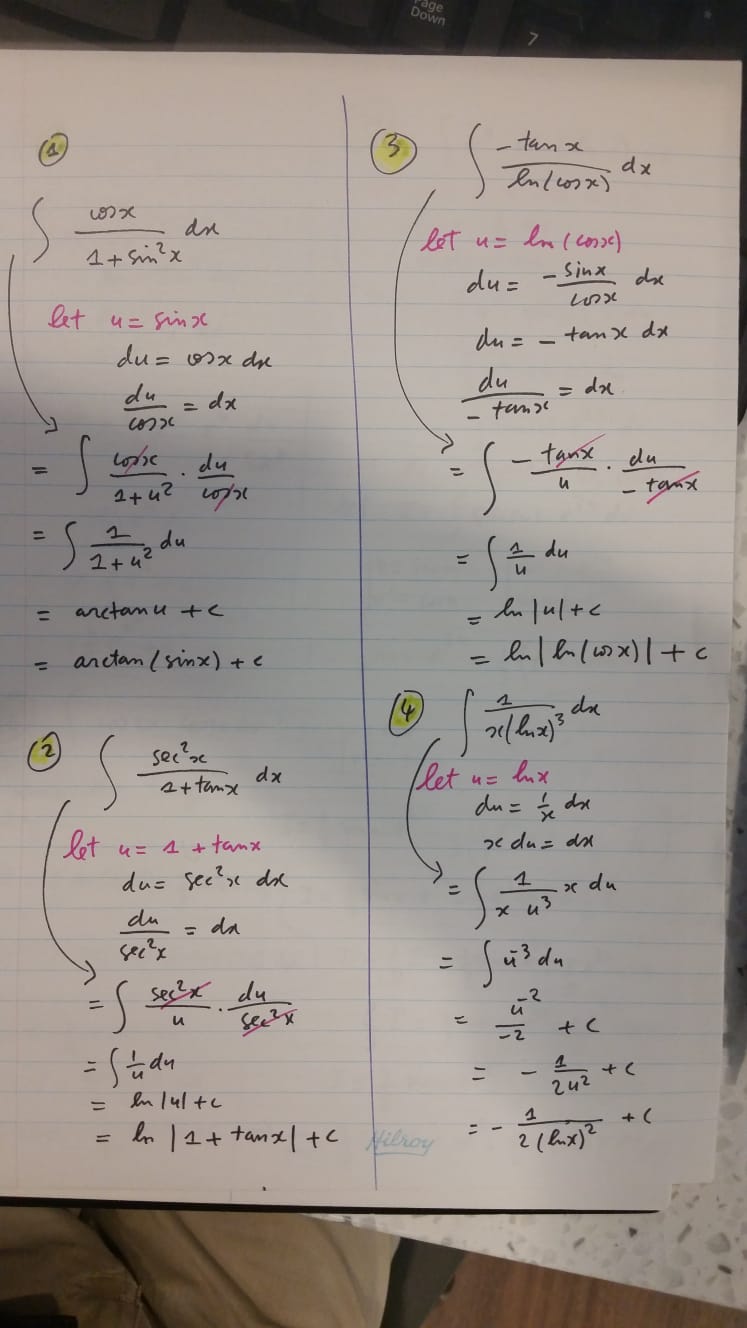 Page
Down
1
∫ cosx / (1 + sin²x) dx
let u = sinx
du = cosx dx
du/cosx = dx
= ∫ cosx / (1 + u²) · du/cosx
= ∫ 1/(1 + u²) du
= arctan u + c
= arctan(sinx) + c
2
∫ sec²x / (1 + tanx) dx
let u = 1 + tanx
du = sec²x dx
du/sec²x = dx
= ∫ sec²x / u · du/sec²x
= ∫ 1/u du
= ln |u| + c
= ln |1 + tanx| + c
3
∫ -tanx / ln(cosx) dx
let u = ln(cosx)
du = -sinx/cosx dx
du = -tanx dx
du/-tanx = dx
= ∫ -tanx / u · du/-tanx
= ∫ 1/u du
= ln |u| + c
= ln | ln(cosx) | + c
4
∫ 1 / x(lnx)³ dx
let u = lnx
du = 1/x dx
x du = dx
= ∫ 1 / x u³ x du
= ∫ u⁻³ du
= u⁻² / -2 + c
= - 1/2u² + c
= - 1/2(lnx)² + c
Hilroy